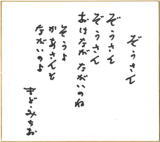 ぞうさん
ぞうさん
ぞうさん
おはなが ながいのね
そうよ
かあさんも
ながいのよ
まど・みちお